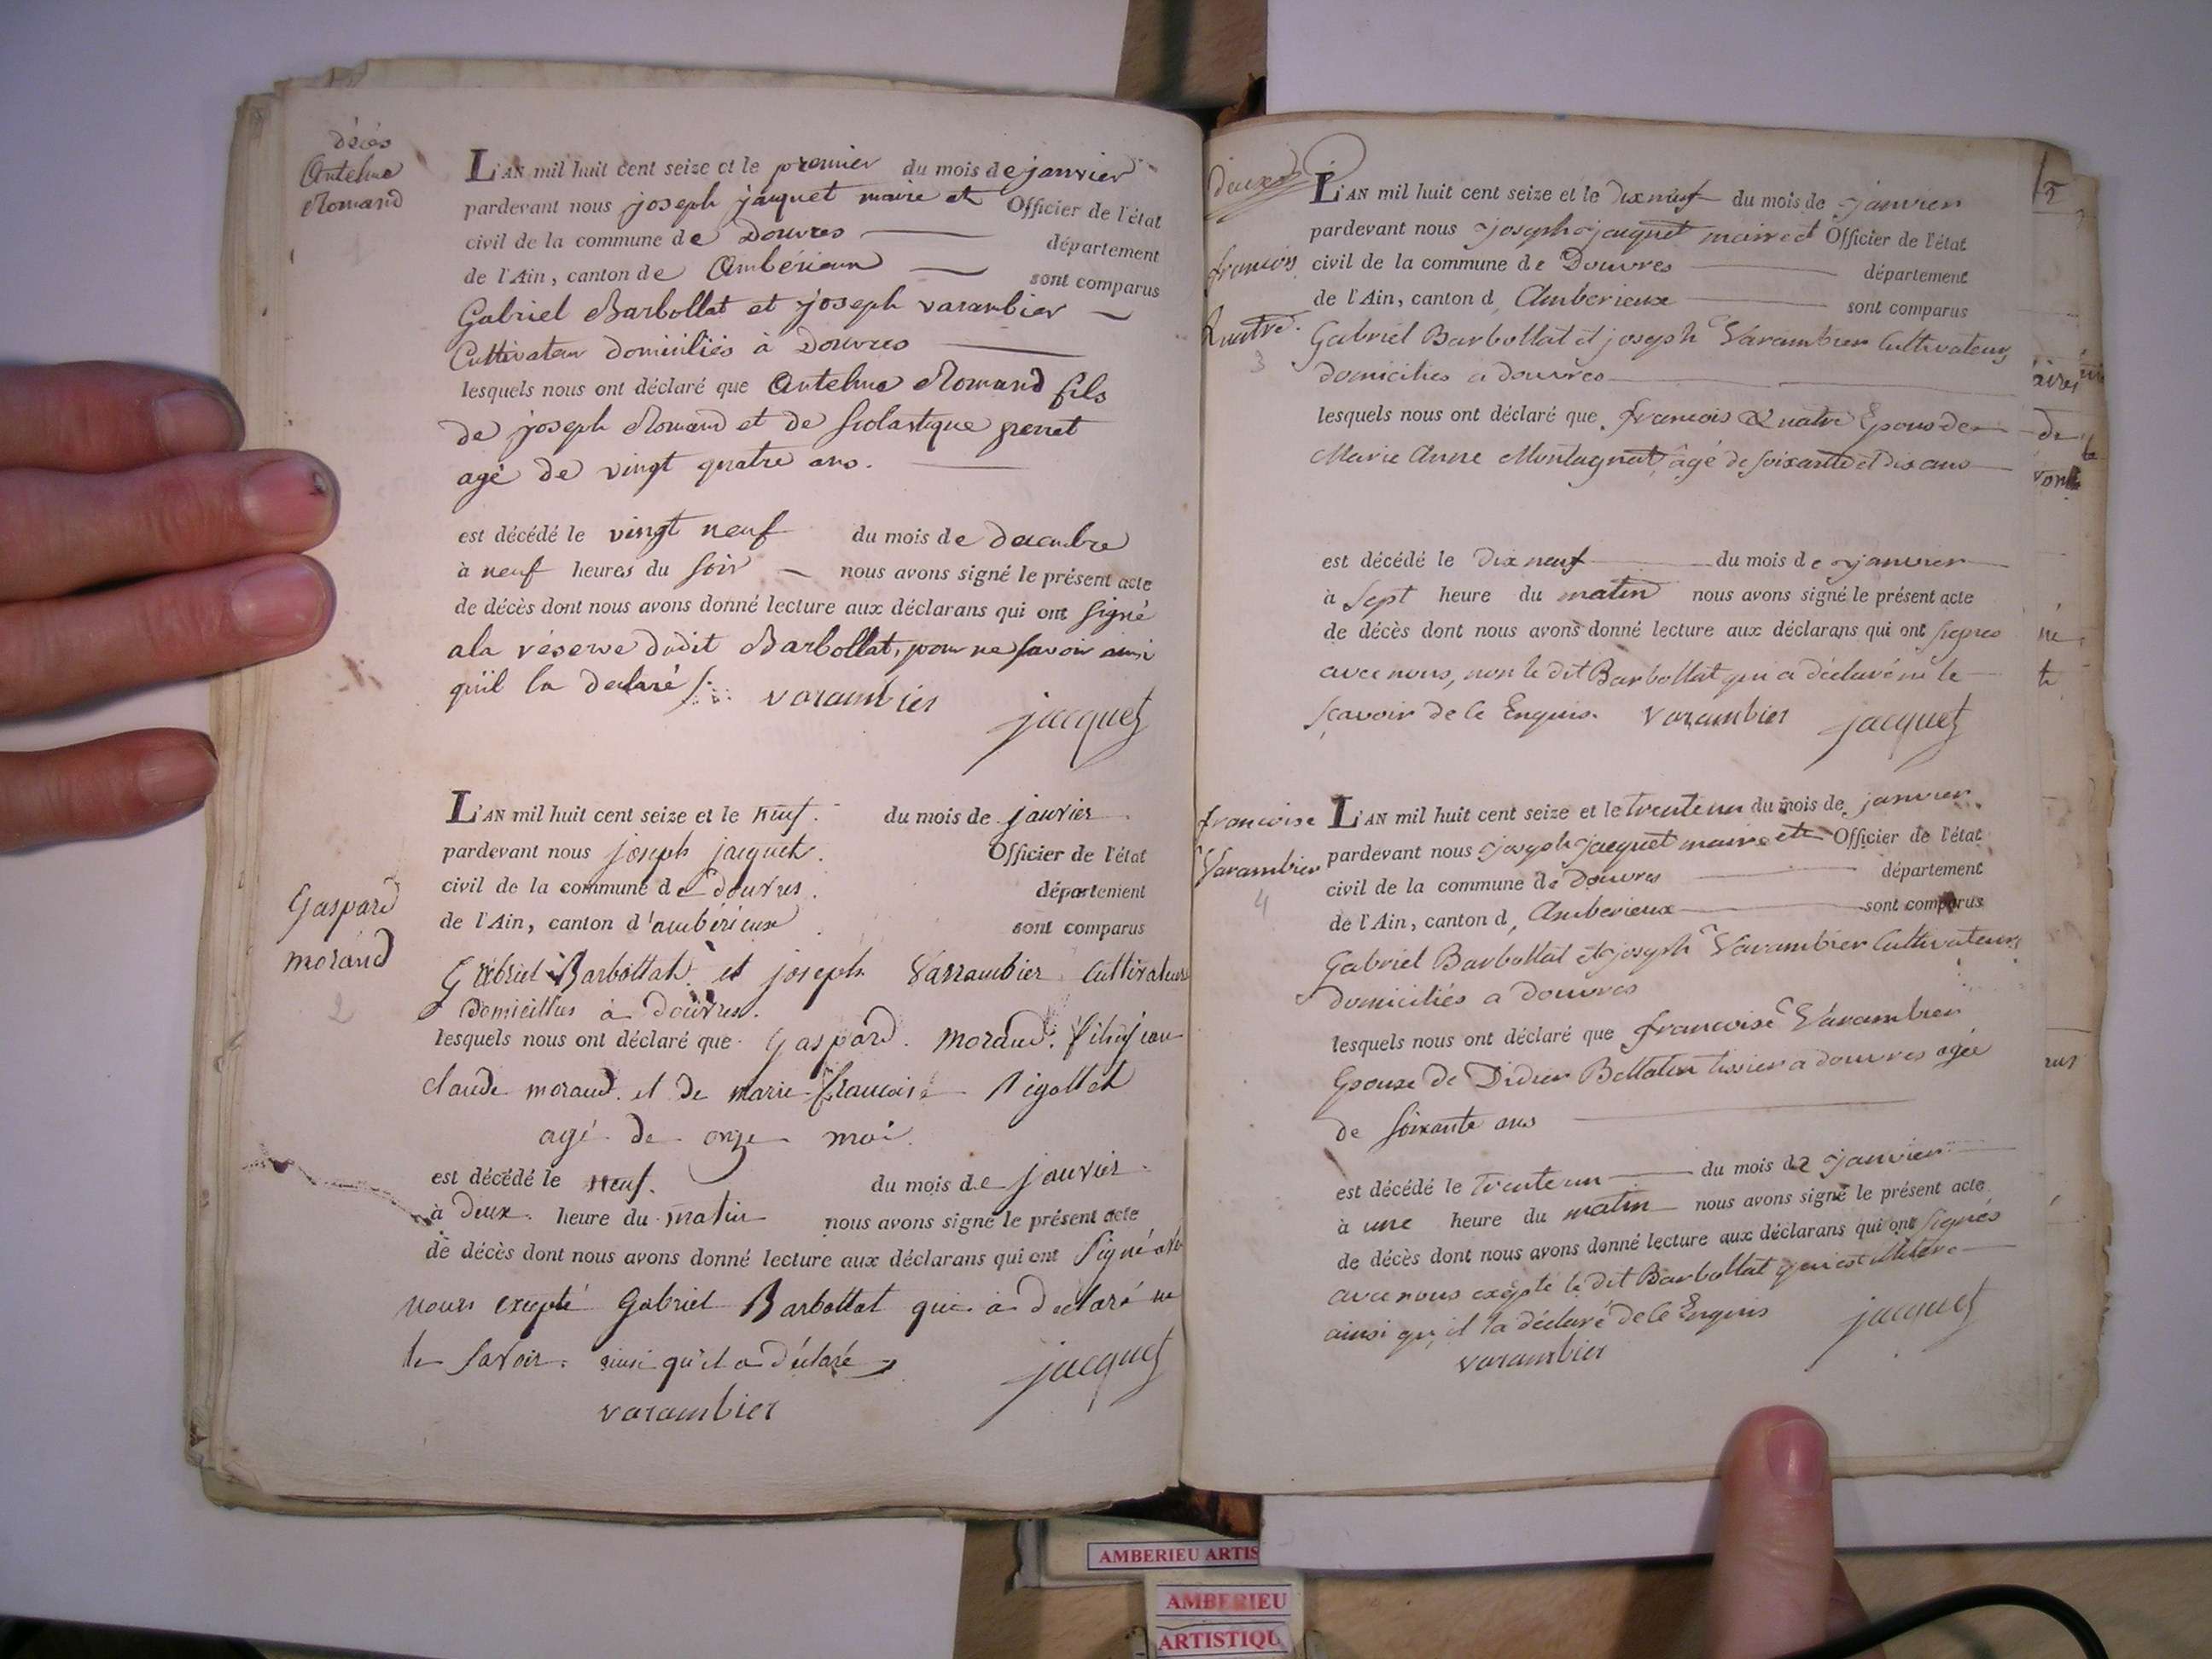 décès
Antelme
Romand
1
L'AN mil huit cent seize et le premier du mois de janvier
pardevant nous joseph jacquet maire et Officier de l'état
civil de la commune de Douvres département
de l'Ain, canton de Ambérieux sont comparus
Gabriel Barbollat et joseph varambier
Cultivateur domiciliés à Douvres
lesquels nous ont déclaré que Antelme Romand fils
de joseph Romand et de Scolastique perret
agé de vingt quatre ans.
est décédé le vingt neuf du mois de decembre
à neuf heures du soir nous avons signé le présent acte
de décès dont nous avons donné lecture aux déclarans qui ont signé
a la réserve dudit Barbollat, pour ne savoir ainsi
qu'il la declaré
varambier jacquet
Gaspard
morand
2
L'AN mil huit cent seize et le neuf. du mois de janvier
pardevant nous joseph jacquet. Officier de l'état
civil de la commune de douvres. département
de l'Ain, canton d'ambérieux sont comparus
Gabriel Barbollat et joseph Varrambier Cultivateurs
domicillies à douvres.
lesquels nous ont déclaré que Gaspard. morand. fils de jean
claude morand. et de marie francoise Rigollet
agé de onze moi.
est décédé le neuf. du mois de janvier
à deux. heure du matin nous avons signé le présent acte
de décès dont nous avons donné lecture aux déclarans qui ont Signé avec
nous excepté Gabriel Barbollat qui a déclaré ne
le savoir. ainsi qu'il a déclaré
jacquet
varambier
5
francois
Quatre.
3
L'AN mil huit cent seize et le dix neuf du mois de janvier
pardevant nous joseph jacquet maire et Officier de l'état
civil de la commune de Douvres département
de l'Ain, canton d Amberieux sont comparus
Gabriel Barbollat et joseph Varambier Cultivateurs
domicilies a douvres
lesquels nous ont déclaré que francois Quatre Epoux de
Marie Anne Montagnat, âgé de soixante et dix ans
est décédé le dix neuf du mois de janvier
à sept heure du matin nous avons signé le présent acte
de décès dont nous avons donné lecture aux déclarans qui ont signes
avec nous, non le dit Barbollat qui a déclaré ne le
sçavoir de ce Enquis. varambier jacquet
francoise
Varambier
4
L'AN mil huit cent seize et le trente un du mois de janvier
pardevant nous joseph jacquet maire et Officier de l'état
civil de la commune de Douvres département
de l'Ain, canton d Amberieux sont comparus
Gabriel Barbollat et joseph Varambier Cultivateurs
domiciliés a douvres
lesquels nous ont déclaré que francoise Varambier
Epouse de Didier Bollatin tissier a douvres agée
de soixante ans
est décédé le trente un du mois de janvier
à une heure du matin nous avons signé le présent acte
de décès dont nous avons donné lecture aux déclarans qui ont signés
avec nous excepté le dit Barbollat qui est illitere
ainsi qu'il la déclaré de ce Enquis jacquet
varambier
AMBERIEU ARTIS
AMBERIEU
ARTISTIQU